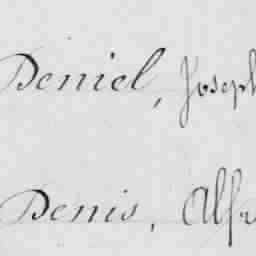 Deniel, Joseph
Denis, Alfr